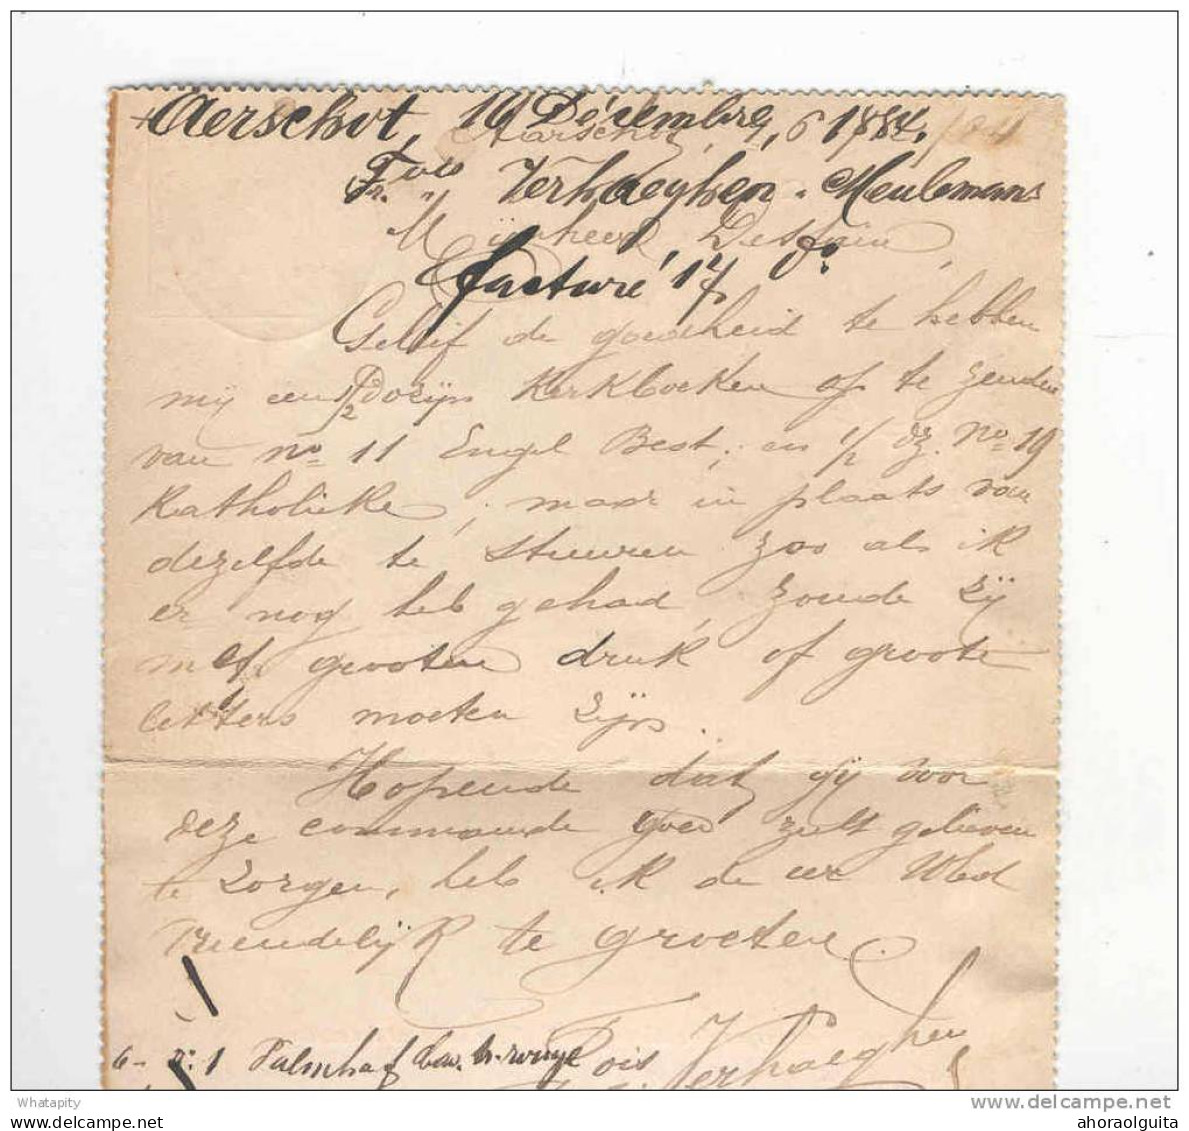 Aerschot, 16 Décembre, 1884.
Aarschot,
Fr. Verhaeghen - Meulemans
Mijnheer Dessain,
facturé 17 do
Gelief de goedheid te hebben
mij een 1/2 Dozijn Kerkboeken op te zenden
van no 11 Engel Best, en 1/2 dz. No 19
Katholieke, maar in plaats van
dezelfde te stuuren zoo als ik
er nog heb gehad, zoude zij
met grooten druk of groote
letters moeten zijn.
Hopende dat gij voor
deze commande goed zult gelieven
te zorgen, heb ik de eer UEd
Vriendelijk te groeten.
Fois Verhaeghen
6 - n: 1 Palmhof
Whatapity
delcampe.net
ahoraolguita